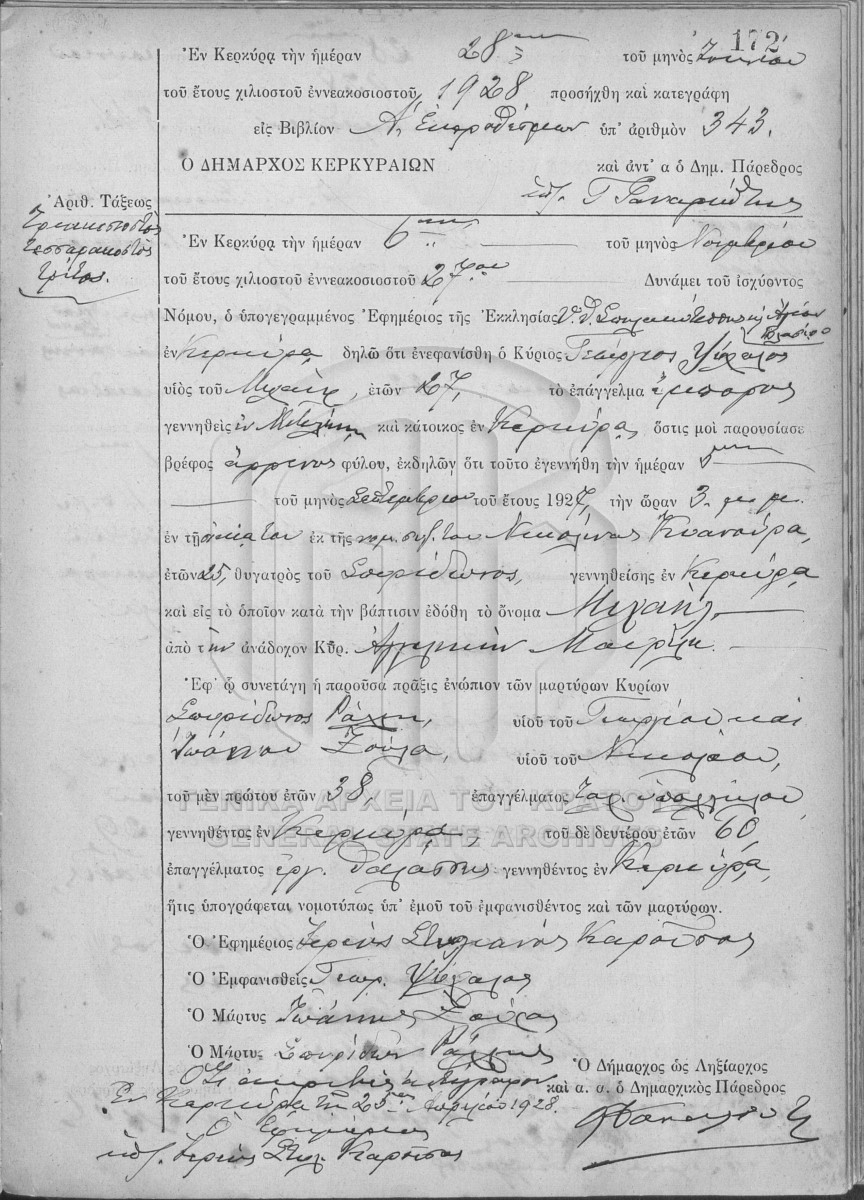 172
Ἐν Κερκύρᾳ τὴν ἡμέραν 28 τοῦ μηνὸς
τοῦ ἔτους χιλιοστοῦ ἐννεακοσιοστοῦ 1928 προσήχθη καὶ κατεγράφη
εἰς Βιβλίον Α. Ἐκπροθέσμων ὑπ' ἀριθμὸν 343.
Ὁ ΔΗΜΑΡΧΟΣ ΚΕΡΚΥΡΑΙΩΝ καὶ ἀντ' α ὁ Δημ. Πάρεδρος
Ἀριθ. Τάξεως
Τριακοσιοστὸς
τεσσαρακοστὸς
τρίτος.
Ἐν Κερκύρᾳ τὴν ἡμέραν 6 τοῦ μηνὸς Νοεμβρίου
τοῦ ἔτους χιλιοστοῦ ἐννεακοσιοστοῦ 27 Δυνάμει τοῦ ἰσχύοντος
Νόμου, ὁ ὑπογεγραμμένος Ἐφημέριος τῆς Ἐκκλησίας
ἐν Κερκύρᾳ δηλῶ ὅτι ἐνεφανίσθη ὁ Κύριος Γεώργιος Ψύχαλος
υἱὸς τοῦ Μιχαὴλ, ἐτῶν 27, τὸ ἐπάγγελμα ἔμπορος
γεννηθεὶς ἐν Μυτιλήνῃ καὶ κάτοικος ἐν Κερκύρᾳ ὅστις μοὶ παρουσίασε
βρέφος ἄρρενος φύλου, ἐκδηλῶν ὅτι τοῦτο ἐγεννήθη τὴν ἡμέραν 5
τοῦ μηνὸς Σεπτεμβρίου τοῦ ἔτους 1927, τὴν ὥραν 3. μ. μ.
ἐν τῇ οἰκίᾳ του ἐκ τῆς νομ. συζ. του Νικολίνας Κυανούρα,
ἐτῶν 25, θυγατρὸς τοῦ Σπυρίδωνος, γεννηθείσης ἐν Κερκύρᾳ
καὶ εἰς τὸ ὁποῖον κατὰ τὴν βάπτισιν ἐδόθη τὸ ὄνομα Μιχαὴλ
ἀπὸ τὴν ἀνάδοχον Κῦρ. Ἀγγελικὴν
Ἐφ' ᾧ συνετάγη ἡ παροῦσα πρᾶξις ἐνώπιον τῶν μαρτύρων Κυρίων
Σπυρίδωνος Ράλλη, υἱοῦ τοῦ Γεωργίου καὶ
Ἰωάννου Ζούλα, υἱοῦ τοῦ Νικολάου,
τοῦ μὲν πρώτου ἐτῶν 38, ἐπαγγέλματος ὑπαλλήλου
γεννηθέντος ἐν Κερκύρᾳ, τοῦ δὲ δευτέρου ἐτῶν 60,
ἐπαγγέλματος ἐργ. θαλάσσης γεννηθέντος ἐν Κερκύρᾳ,
ἥτις ὑπογράφεται νομοτύπως ὑπ' ἐμοῦ τοῦ ἐμφανισθέντος καὶ τῶν μαρτύρων.
Ὁ Ἐφημέριος Ἱερεὺς Στυλιανὸς Καροῦσος
Ὁ Ἐμφανισθεὶς Γεωρ. Ψύχαλος
Ὁ Μάρτυς Ἰωάννης Ζούλας
Ὁ Μάρτυς Σπυρίδων Ράλλης
Ὁ Δήμαρχος ὡς Ληξίαρχος
καὶ α. α. ὁ Δημαρχικὸς Πάρεδρος
Ὅτι ἀκριβὲς ἀντίγραφον
Ἐν Κερκύρᾳ τῇ 25 Ἀπριλίου 1928.
Ὁ Ἐφημέριος
Ἱερεὺς Στυλ. Καροῦσος
ΓΕΝΙΚΑ ΑΡΧΕΙΑ ΤΟΥ ΚΡΑΤΟΥΣ
GENERAL STATE ARCHIVES